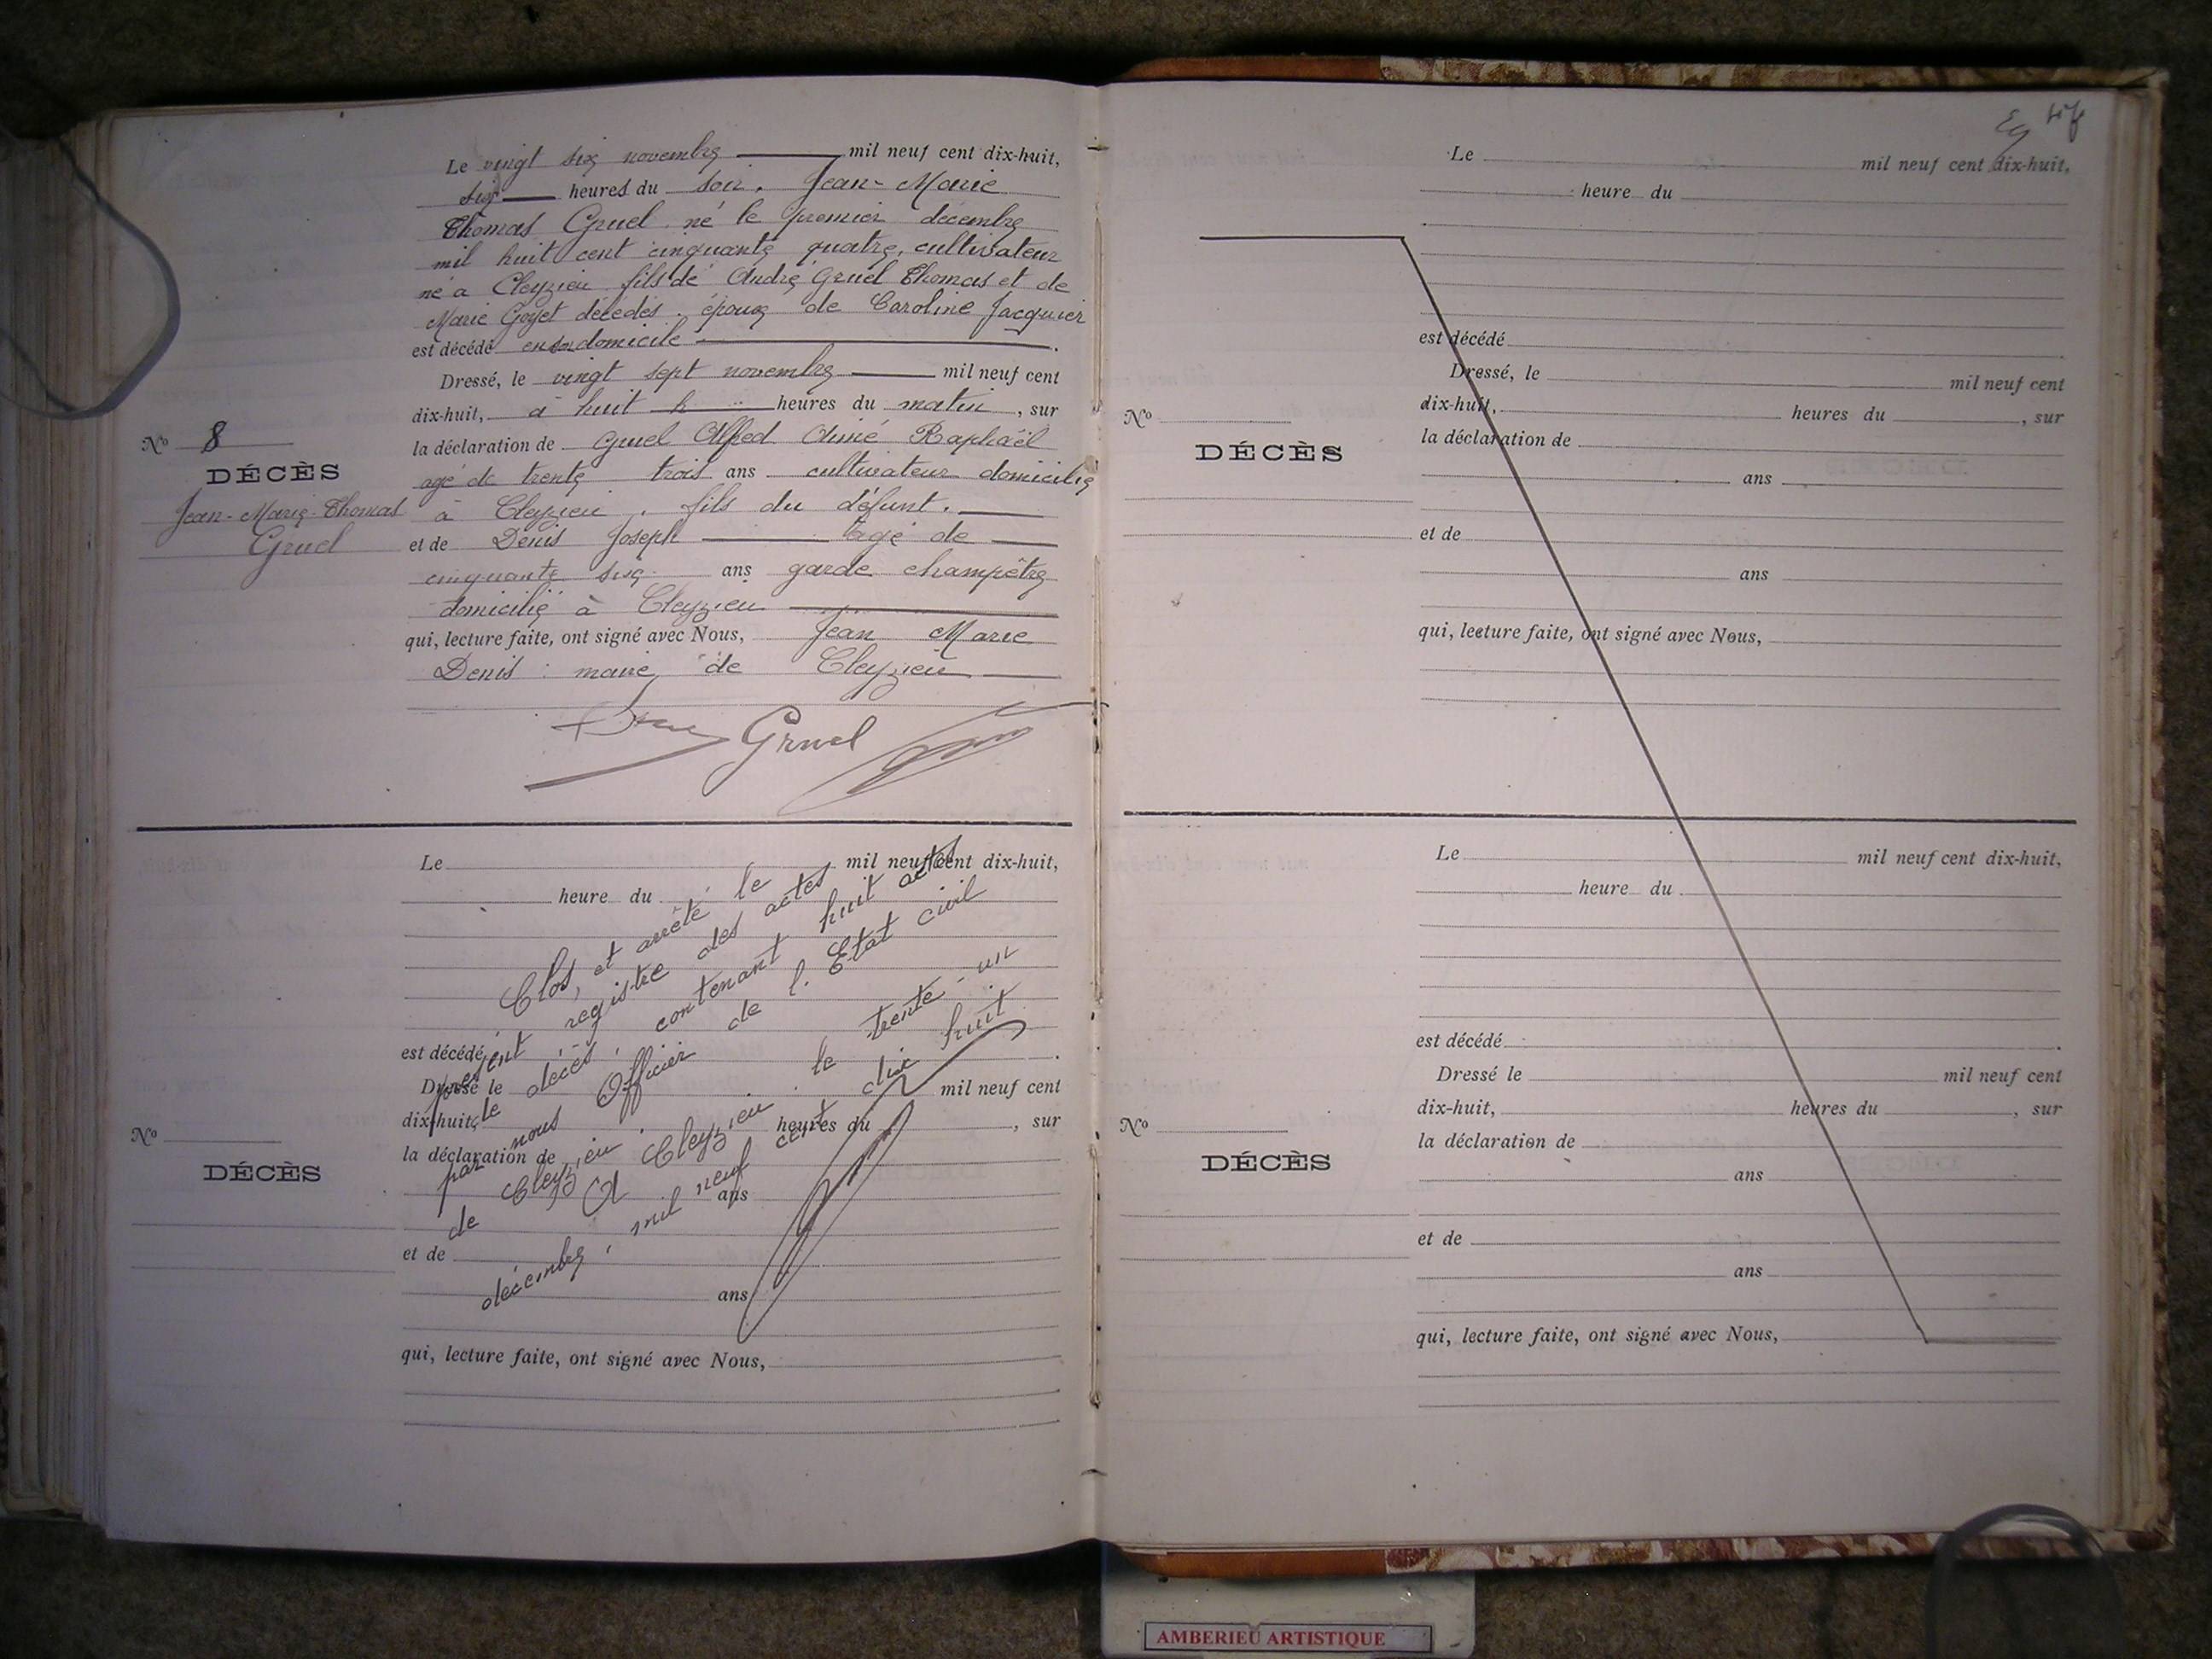 Le vingt six novembre mil neuf cent dix-huit,
six heures du soir. Jean-Marie
Thomas Gruel né le premier décembre
mil huit cent cinquante quatre, cultivateur
né à Cleyzieu fils de André Gruel Thomas et de
Marie Goyet décédés. époux de Caroline Jacquier
est décédé en son domicile
Dressé, le vingt sept novembre mil neuf cent
dix-huit, à huit h heures du matin, sur
la déclaration de Gruel Alfred Aimé Raphaël
agé de trente trois ans cultivateur domicilié
à Cleyzieu. fils du défunt.
et de Denis Joseph agé de
cinquante six ans garde champêtre
domicilié à Cleyzieu
qui, lecture faite, ont signé avec Nous, Jean Marie
Denis maire de Cleyzieu
Gruel
No 8
DÉCÈS
Jean-Marie-Thomas
Gruel
Le mil neuf cent dix-huit,
heure du
est décédé
Dressé le mil neuf cent
dix-huit, heures du , sur
la déclaration de
ans
et de
ans
qui, lecture faite, ont signé avec Nous,
Clos, et arrêté le
présent registre des actes
de décès, contenant huit actes
par nous Officier de l'Etat civil
de Cleyzieu. A Cleyzieu le trente-un
décembre, mil neuf cent dix huit
No
DÉCÈS
47
Le mil neuf cent dix-huit,
heure du
est décédé
Dressé, le mil neuf cent
dix-huit, heures du , sur
la déclaration de
ans
et de
ans
qui, lecture faite, ont signé avec Nous,
No
DÉCÈS
Le mil neuf cent dix-huit,
heure du
est décédé
Dressé le mil neuf cent
dix-huit, heures du , sur
la déclaration de
ans
et de
ans
qui, lecture faite, ont signé avec Nous,
No
DÉCÈS
AMBERIEU ARTISTIQUE